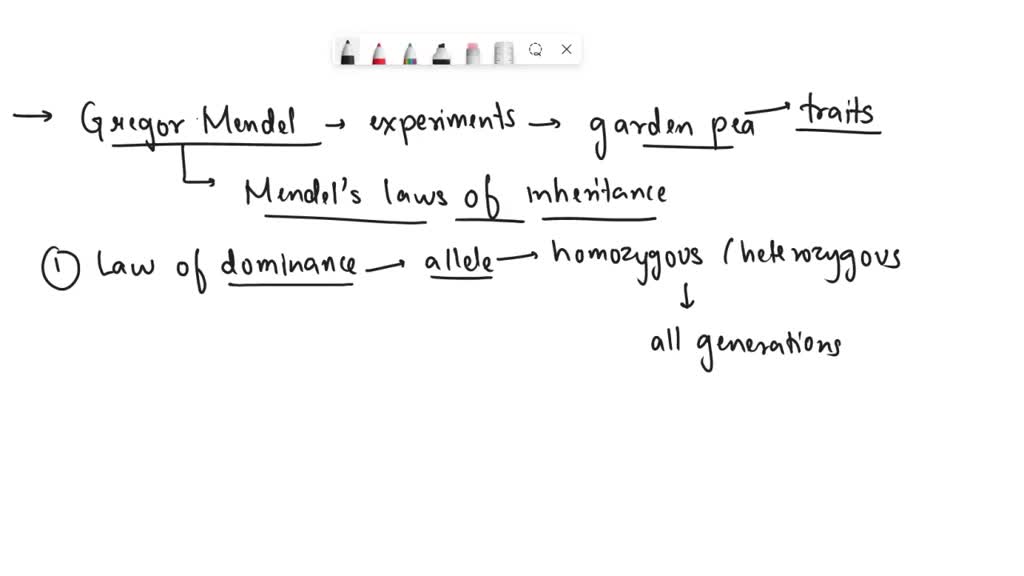 → Gregor Mendel → experiments → garden pea → traits
↳ Mendel's laws of inheritance
① Law of dominance → allele → homozygous / heterozygous
↓
all generations